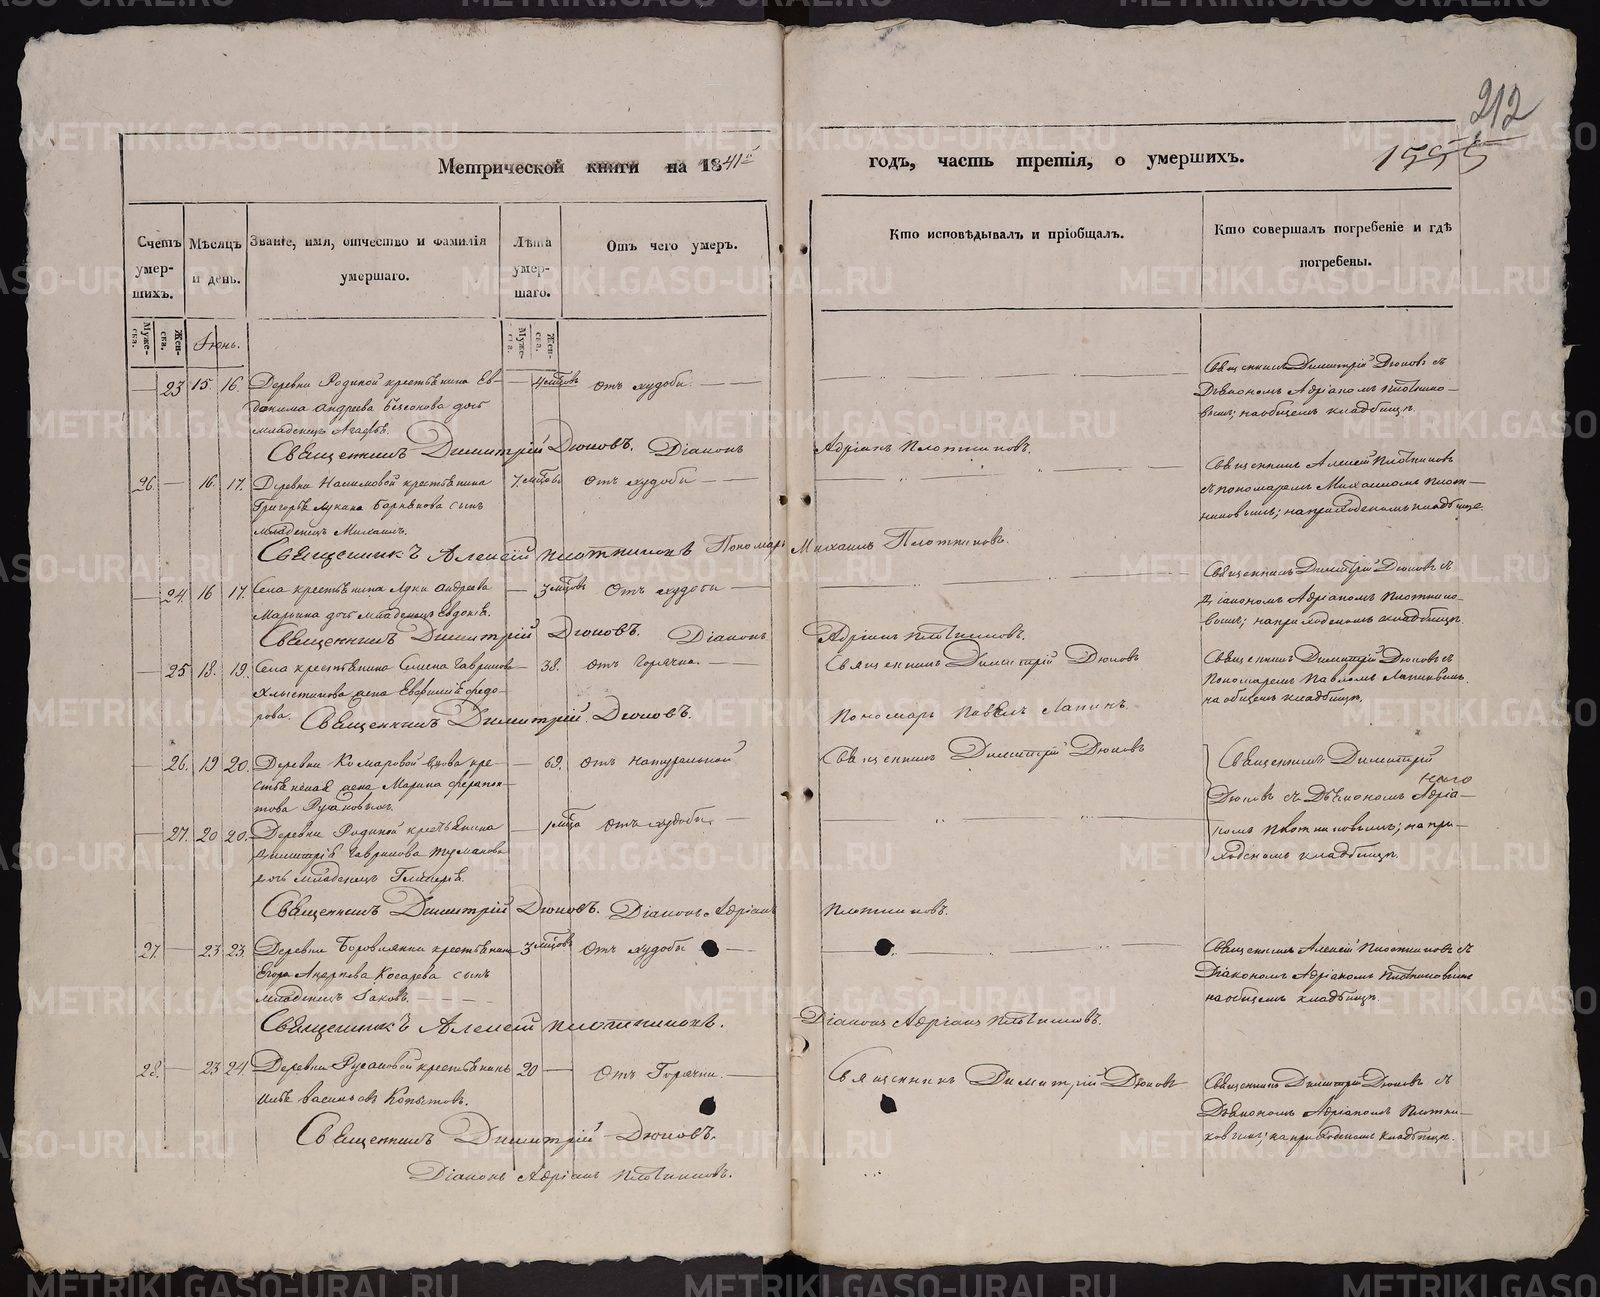 212
1555
Метрической книги на 1841й годъ, часть третія, о умершихъ.
Счетъ умер-шихъ.
Мѣсяцъ и день.
Званіе, имя, отчество и фамилія умершаго.
Лѣта умер-шаго.
Отъ чего умеръ.
Кто исповѣдывалъ и пріобщалъ.
Кто совершалъ погребеніе и гдѣ погребены.
Муже-ска.
Жен-ска.
Іюнь.
Муже-ска.
Жен-ска.
23 15 16 Деревни Родиной крестьянина Ев-
докима Андреева дочь
младенецъ
4 мѣсцовъ
отъ худобы
Священникъ Димитрій Дюковъ съ
Діакономъ Адріаномъ Плотнико-
вымъ; на общемъ кладбищѣ.
Священникъ Димитрій Дюковъ. Діаконъ Адріанъ Плотниковъ.
26 16 17. Деревни крестьянина
Григорья сынъ
младенецъ Михаилъ.
7. мѣсцовъ
отъ худобы
Священникъ Алексѣй Плотниковъ
съ пономаремъ Михаиломъ Плот-
никовымъ; на приходскомъ кладбищѣ.
Священникъ Алексій Плотниковъ Пономарь Михаилъ Плотниковъ.
24. 16 17. Села крестьянина Луки Андреева
Марьина дочь младенецъ Евдокія.
3 мѣсцовъ
Отъ худобы
Священникъ Димитрій Дюковъ съ
Діакономъ Адріаномъ Плотнико-
вымъ; на приходскомъ кладбищѣ.
Священникъ Димитрій Дюковъ. Діаконъ Адріанъ Плотниковъ.
25 18. 19. Села крестьянина Семена Гаврилова
жена Евфимія Федо-
рова.
38.
отъ горячки.
Священникъ Димитрій Дюковъ
Пономарь Павелъ Лапинъ.
Священникъ Димитрій Дюковъ съ
Пономаремъ Павломъ Лапинымъ.
на общемъ кладбищѣ.
Священникъ Димитрій Дюковъ.
26. 19 20. Деревни Комаровой вдова кре-
стьянская жена Марина Ферапон-
това
69.
отъ натуральной
Священникъ Димитрій Дюковъ
Священникъ Димитрій
Дюковъ съ Діакономъ Адріа-
номъ Плотниковымъ; на при-
ходскомъ кладбищѣ.
27. 20 20. Деревни Родиной крестьянина
Димитрія Гаврилова Туманова
дочь младенецъ Гликерія.
1 мѣсца
Отъ худобы.
Священникъ Димитрій Дюковъ. Діаконъ Адріанъ Плотниковъ.
27. 23 23. Деревни Боровлянки крестьянина
Егора Андреева Косарева сынъ
младенецъ Іаковъ.
3 мѣсцовъ
Отъ худобы
Священникъ Алексій Плотниковъ съ
Діакономъ Адріаномъ Плотниковымъ
на общемъ кладбищѣ.
Священникъ Алексій Плотниковъ. Діаконъ Адріанъ Плотниковъ.
28. 23 24. Деревни Русаковой крестьянинъ
Васильевъ Копытовъ.
20
Отъ Горячки.
Священникъ Димитрій Дюковъ
Священникъ Димитрій Дюковъ съ
Діакономъ Адріаномъ Плотни-
ковымъ; на приходскомъ кладбищѣ.
Священникъ Димитрій Дюковъ.
Діаконъ Адріанъ Плотниковъ.
METRIKI.GASO-URAL.RU